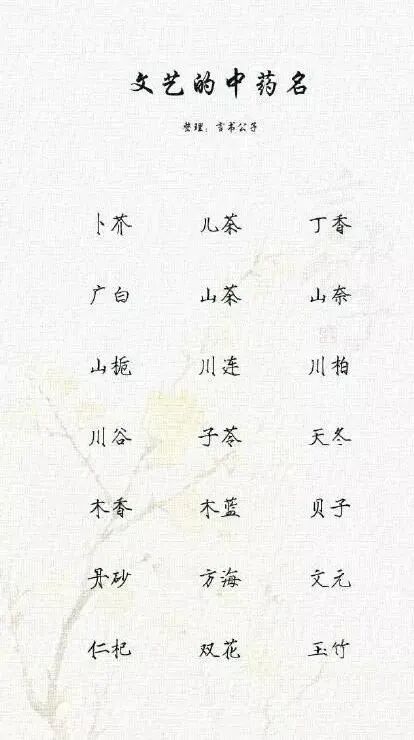 文艺的中药名
整理：言书公子
卜芥 儿茶 丁香
广白 山茶 山奈
山栀 川连 川柏
川谷 子苓 天冬
木香 木蓝 贝子
丹砂 方海 文元
仁杞 双花 玉竹